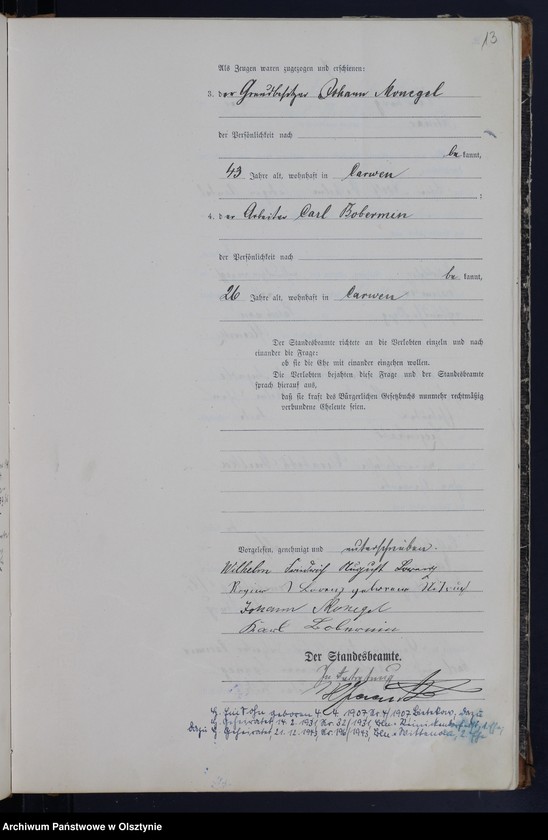 13
Als Zeugen waren zugezogen und erschienen:
3. der Grundbesitzer Johann Monegel
der Persönlichkeit nach
be kannt,
43 Jahre alt, wohnhaft in Carwen
;
4. der Arbeiter Carl Bobermin
der Persönlichkeit nach
be kannt,
26 Jahre alt, wohnhaft in Carwen
Der Standesbeamte richtete an die Verlobten einzeln und nach
einander die Frage:
ob sie die Ehe mit einander eingehen wollen.
Die Verlobten bejahten diese Frage und der Standesbeamte
sprach hierauf aus,
daß sie kraft des Bürgerlichen Gesetzbuchs nunmehr rechtmäßig
verbundene Eheleute seien.
Vorgelesen, genehmigt und unterschrieben.
Wilhelm Friedrich August
Lorenz geborene
Johann Monegel
Karl Bobermin
Der Standesbeamte.
In Vertretung
geboren 4. 4. 1907 Nr 4/1907 dazu
geheiratet 14. 2. 1931, Nr. 32/1931, Bln.
Dazu geheiratet, 21. 12. 1943, Nr. 196/1943, Bln. Wittenau,
Archiwum Państwowe w Olsztynie